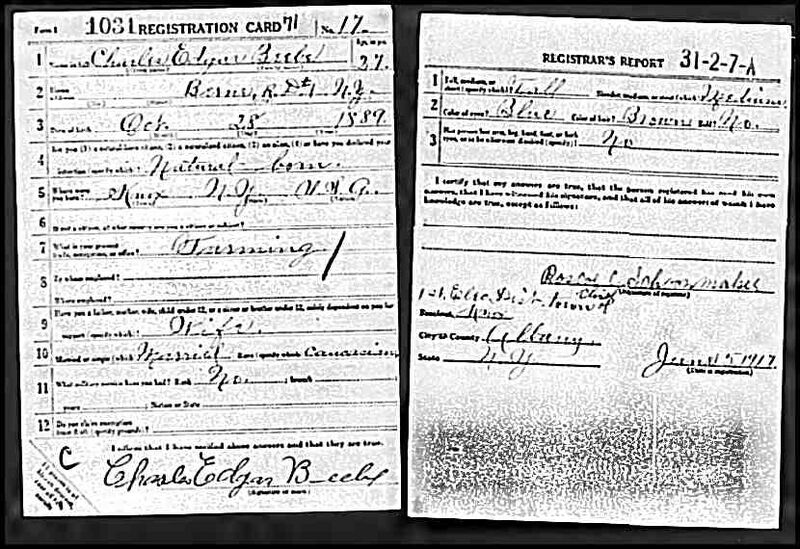 Form 1 1031 REGISTRATION CARD 71 No. 17
1 Name in full Charles Edgar Beebe Age, in yrs. 27
2 Home address Berne, R. D. #1 N.Y.
3 Date of birth Oct. 28 1889
4 Are you (1) a natural-born citizen, (2) a naturalized citizen, (3) an alien, (4) or have you declared your intention (specify which)? Natural-born
5 Where were you born? Knox N.Y. U.S.A.
6 If not a citizen, of what country are you a citizen or subject?
7 What is your present trade, occupation, or office? Farming
8 By whom employed?
Where employed?
9 Have you a father, mother, wife, child under 12, or a sister or brother under 12, solely dependent on you for support (specify which)? Wife
10 Married or single (which)? Married Race (specify which)? Caucasian
11 What military service have you had? Rank No branch
years Nation or State
12 Do you claim exemption from draft (specify grounds)?
I affirm that I have verified above answers and that they are true.
C
Charles Edgar Beebe
(Signature or mark)
REGISTRAR'S REPORT 31-2-7-A
1 Tall, medium, or short (specify which)? Tall Slender, medium, or stout (which)? Medium
2 Color of eyes? Blue Color of hair? Brown Bald? No
3 Has person lost arm, leg, hand, foot, or both eyes, or is he otherwise disabled (specify)? No
I certify that my answers are true, that the person registered has read his own answers, that I have witnessed his signature, and that all of his answers of which I have knowledge are true, except as follows:
(Signature of registrar)
1st. Elec. Dist. Town of
Precinct Knox
City or County Albany
State N.Y.
June 5 1917
(Date of registration)